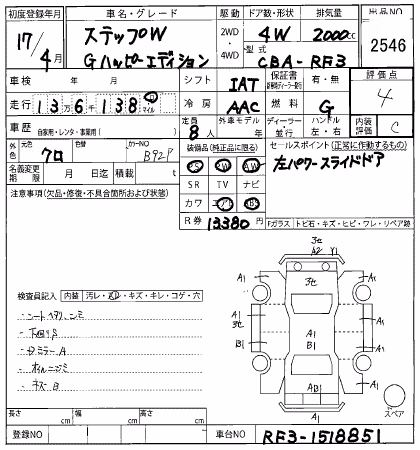 初度登録年月 車名・グレード 駆動 ドア数・形状 排気量 出品NO
17/4月 ステップW Gハッピーエディション 2WD・4WD 4W 2000cc 2546
型式 CBA-RF3
車検 年 月 シフト IAT 保証書 有・無 評価点
走行 13万6千138 マイル 冷房 AAC 燃料 G 4
車歴 自家用・レンタ・事業用( ) 定員 8人 外車モデル 年 ディーラー・並行 ハンドル 左・右 内装 C
外色 元色 クロ 色替 カラーNO B92P 装備品(純正品に限る) セールスポイント(正常に作動するもの)
PS PW AW 左パワースライドドア
名義変更期限 月 日迄 積載 t SR TV ナビ
注意事項(欠品・修復・不具合箇所および状態) カワ エアB
R券 13380円 Fガラス トビ石・キズ・ヒビ・ワレ・リペア跡
3セ
A2 Y1
A1 3セ A1
A1
3セ A1
B1 B1 A1
A1 AB1 A1
A1
スペア
検査員記入 内装 汚レ・キズ・キレ・コゲ・穴
シートヘタリ、シミ
下廻りS
ドミラーA
オイルニジミ
ネズB
長さ cm 幅 cm 高さ cm
登録NO 車台NO RF3-1518851